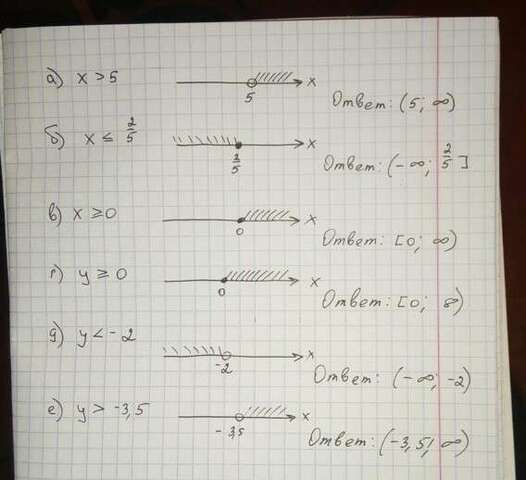 а) x > 5
x
5
Ответ: (5; ∞)
б) x ≤ 2/5
x
2/5
Ответ: (-∞; 2/5]
в) x ≥ 0
x
0
Ответ: [0; ∞)
г) y ≥ 0
x
0
Ответ: [0; 8)
д) y < -2
x
-2
Ответ: (-∞; -2)
е) y > -3,5
x
-3,5
Ответ: (-3,5; ∞)